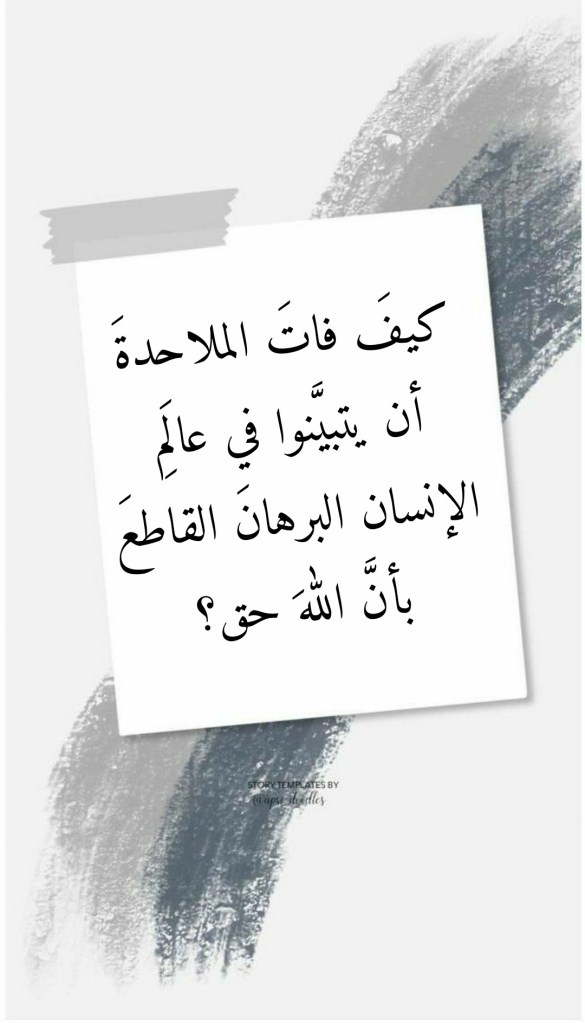 كيفَ فاتَ الملاحدةَ
أن يتبيَّنوا في عالَمِ
الإنسان البرهانَ القاطعَ
بأنَّ اللهَ حق؟
STORY TEMPLATES BY